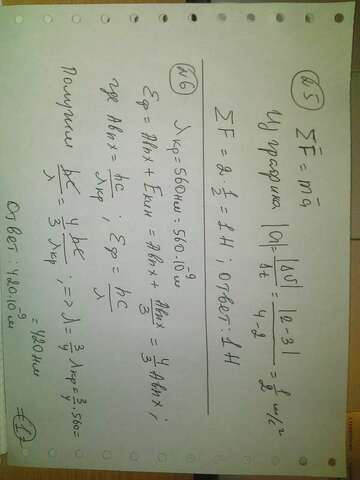 №5 ΣF⃗ = ma⃗
Из графика |a| = |Δv|/Δt = |2-3|/4-2 = 1/2 м/с²
ΣF = 2 1/2 = 1 Н; ответ: 1 Н
№6 λкр = 560 нм = 560·10⁻⁹ м
Eф = Aвых + Eкин = Aвых + Aвых/3 = 4/3 Aвых;
где Aвых = hc/λкр; Eф = hc/λ
Получим hc/λ = 4/3 hc/λкр; => λ = 3/4 λкр = 3/4·560 =
= 420 нм
Ответ: 420·10⁻⁹ м